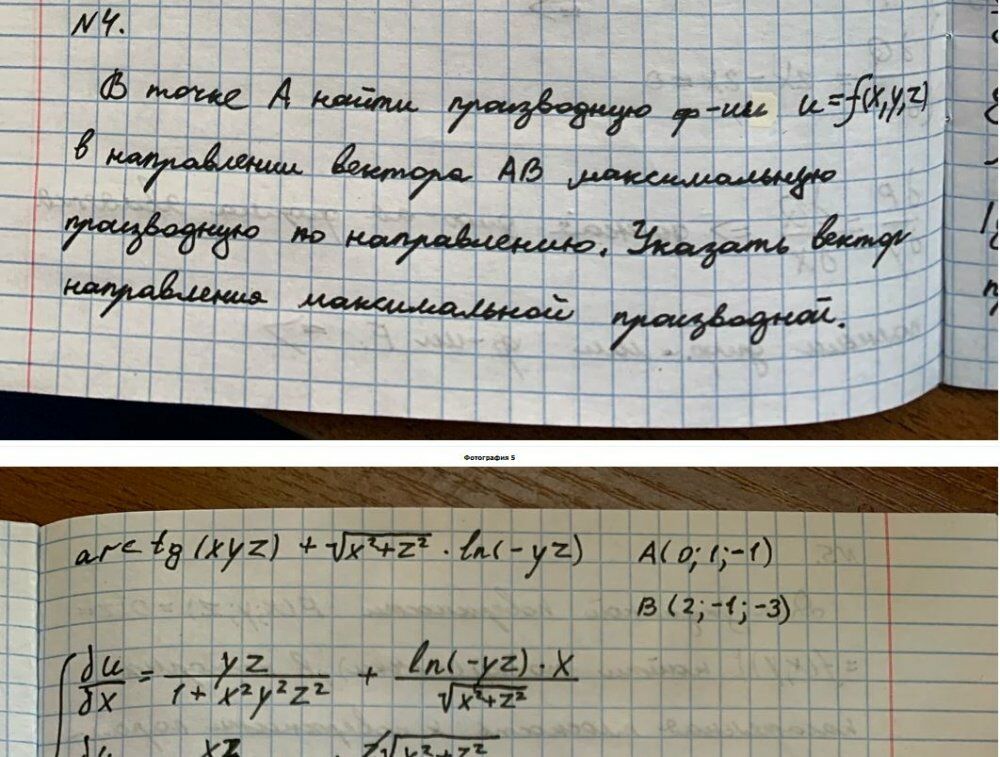 N4.
В точке А найти производную ф-ии u=f(x,y,z)
в направлении вектора АВ максимальную
производную по направлению. Указать вектор
направления максимальной производной.
Фотография 5
arctg(xyz) + √(x²+z²) · ln(-yz) A(0;1;-1)
B(2;-1;-3)
δu/δx = yz/(1+x²y²z²) + ln(-yz)·x/√(x²+z²)